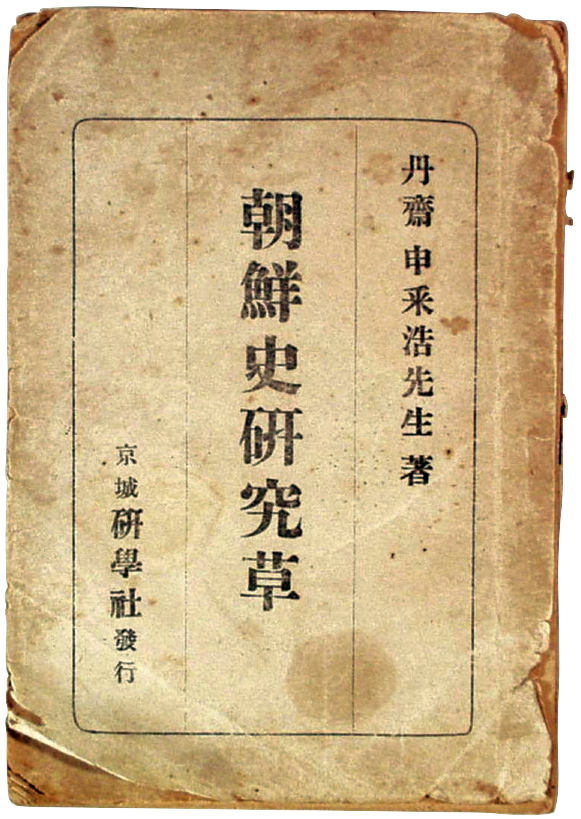 丹齋 申采浩先生 著
朝鮮史硏究草
京城 硏學社 發行